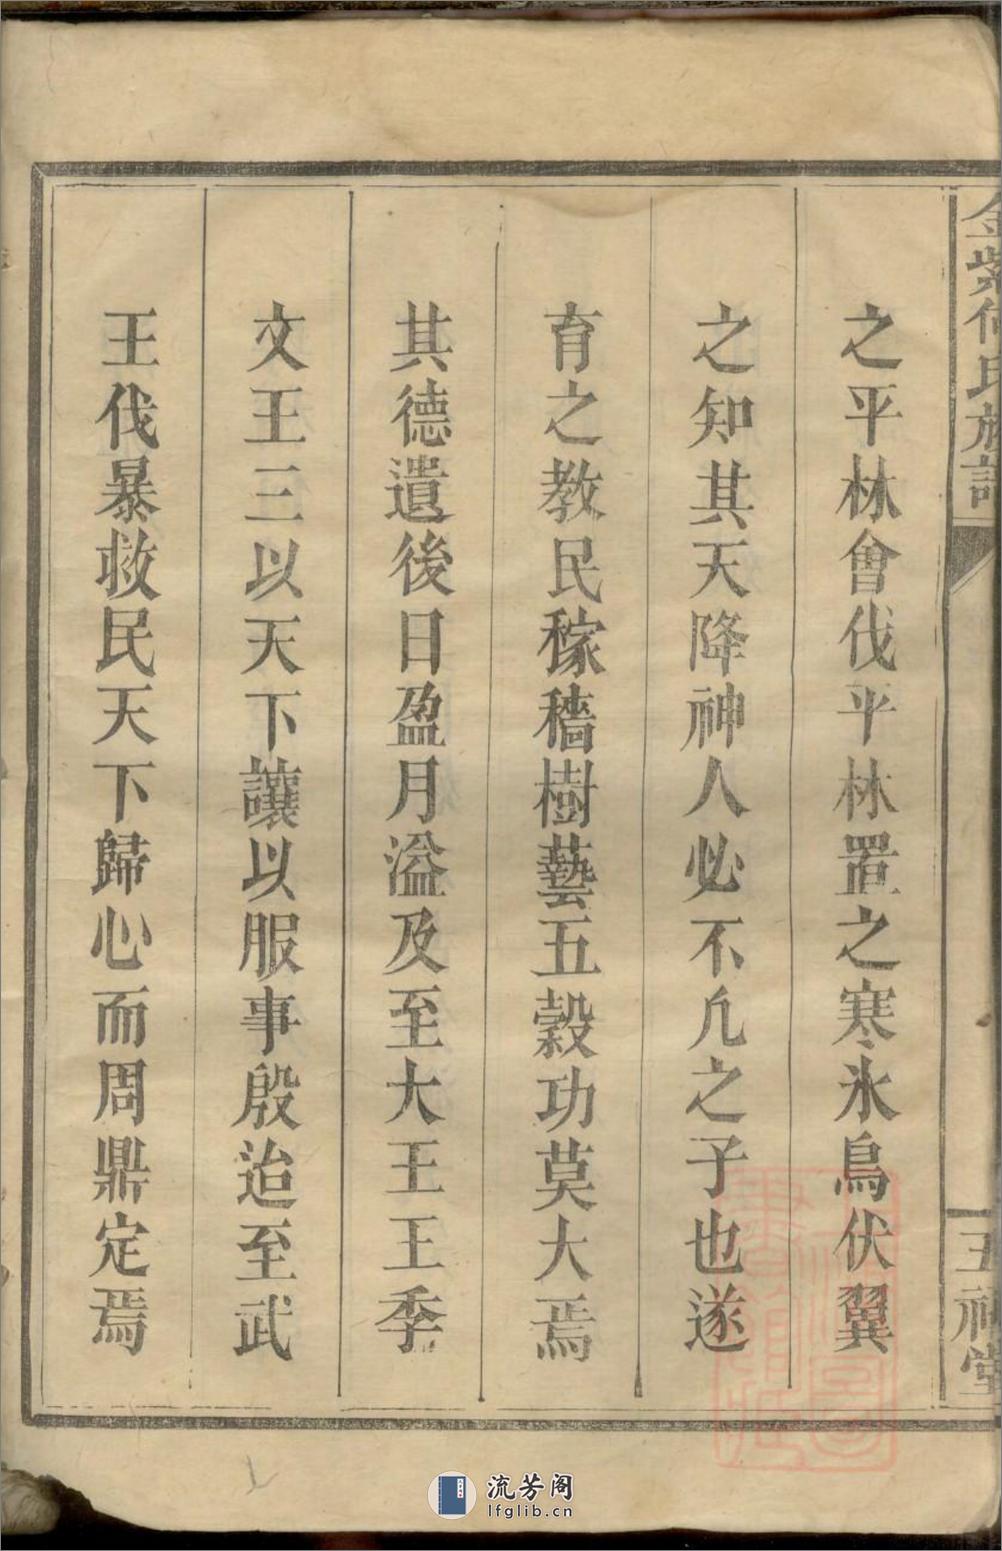 之平林會伐平林置之寒氷鳥伏翼
之知其天降神人必不凢之子也遂
育之教民稼穡樹藝五穀功莫大焉
其德遺後日盈月溢及至大王王季
文王三以天下讓以服事殷迨至武
王伐暴救民天下歸心而周鼎定焉
金紫何氏族譜
堂
流芳阁
lfglib.cn